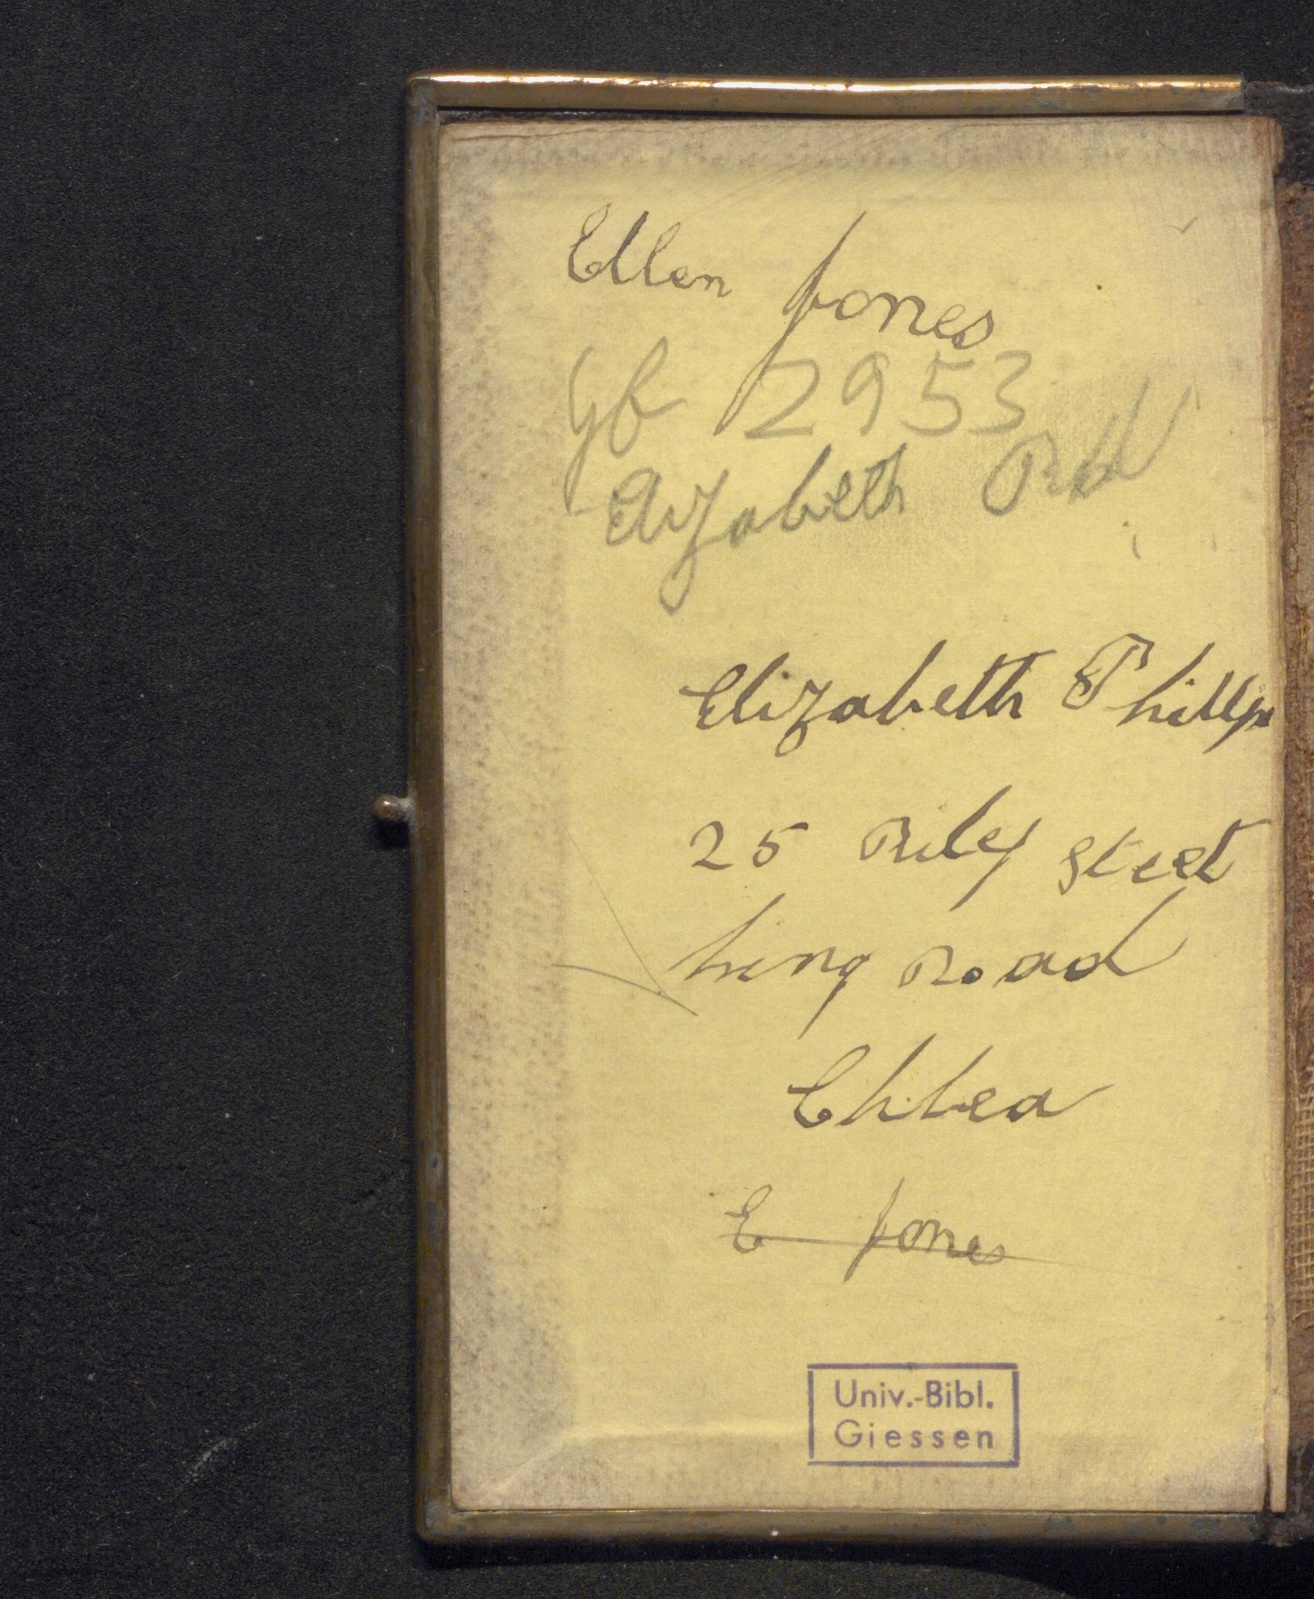 Ellen Jones
2953
Elizabeth
Elizabeth Phillps
25 Riley Street
king Road
Chlea
E Jones
Univ.-Bibl.
Giessen